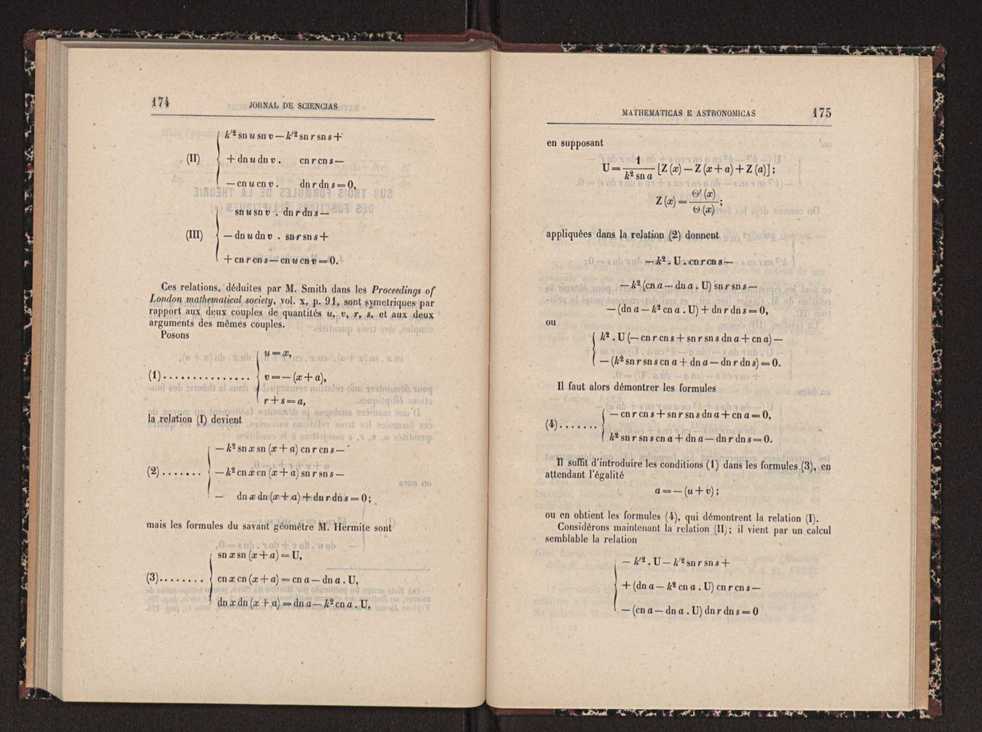 174 JORNAL DE SCIENCIAS
k'² sn u sn v — k'² sn r sn s +
(II) + dn u dn v . cn r cn s —
— cn u cn v . dn r dn s = 0,
sn u sn v . dn r dn s —
(III) — dn u dn v . sn r sn s +
+ cn r cn s — cn u cn v = 0.
Ces relations, déduites par M. Smith dans les Proceedings of
London mathematical society, vol. x, p. 91, sont symetriques par
rapport aux deux couples de quantités u, v, r, s, et aux deux
arguments des mêmes couples.
Posons
u = x,
(1) . . . . . . . . . . . . . . . v = — (x + a),
r + s = a,
la relation (I) devient
— k² sn x sn (x + a) cn r cn s —
(2) . . . . . . . — k² cn x cn (x + a) sn r sn s —
— dn x dn (x + a) + dn r dn s = 0;
mais les formules du savant géométre M. Hermite sont
sn x sn (x + a) = U,
(3) . . . . . . . . cn x cn (x + a) = cn a — dn a . U,
dn x dn (x + a) = dn a — k² cn a . U,
MATHEMATICAS E ASTRONOMICAS 175
en supposant
U = 1/(k² sn a) [Z (x) — Z (x + a) + Z (a)];
Z (x) = Θ' (x)/Θ (x);
appliquées dans la relation (2) donnent
— k² . U . cn r cn s —
— k² (cn a — dn a . U) sn r sn s —
— (dn a — k² cn a . U) + dn r dn s = 0,
ou
k² . U (— cn r cn s + sn r sn s dn a + cn a) —
— (k² sn r sn s cn a + dn a — dn r dn s) = 0.
Il faut alors démontrer les formules
— cn r cn s + sn r sn s dn a + cn a = 0,
(4) . . . . . . .
k² sn r sn s cn a + dn a — dn r dn s = 0.
Il suffit d'introduire les conditions (1) dans les formules (3), en
attendant l'égalité
a = — (u + v);
ou en obtient les formules (4), qui démontrent la relation (I).
Considérons maintenant la relation (II); il vient par un calcul
semblable la relation
— k'² . U — k'² sn r sn s +
+ (dn a — k² cn a . U) cn r cn s —
— (cn a — dn a . U) dn r dn s = 0